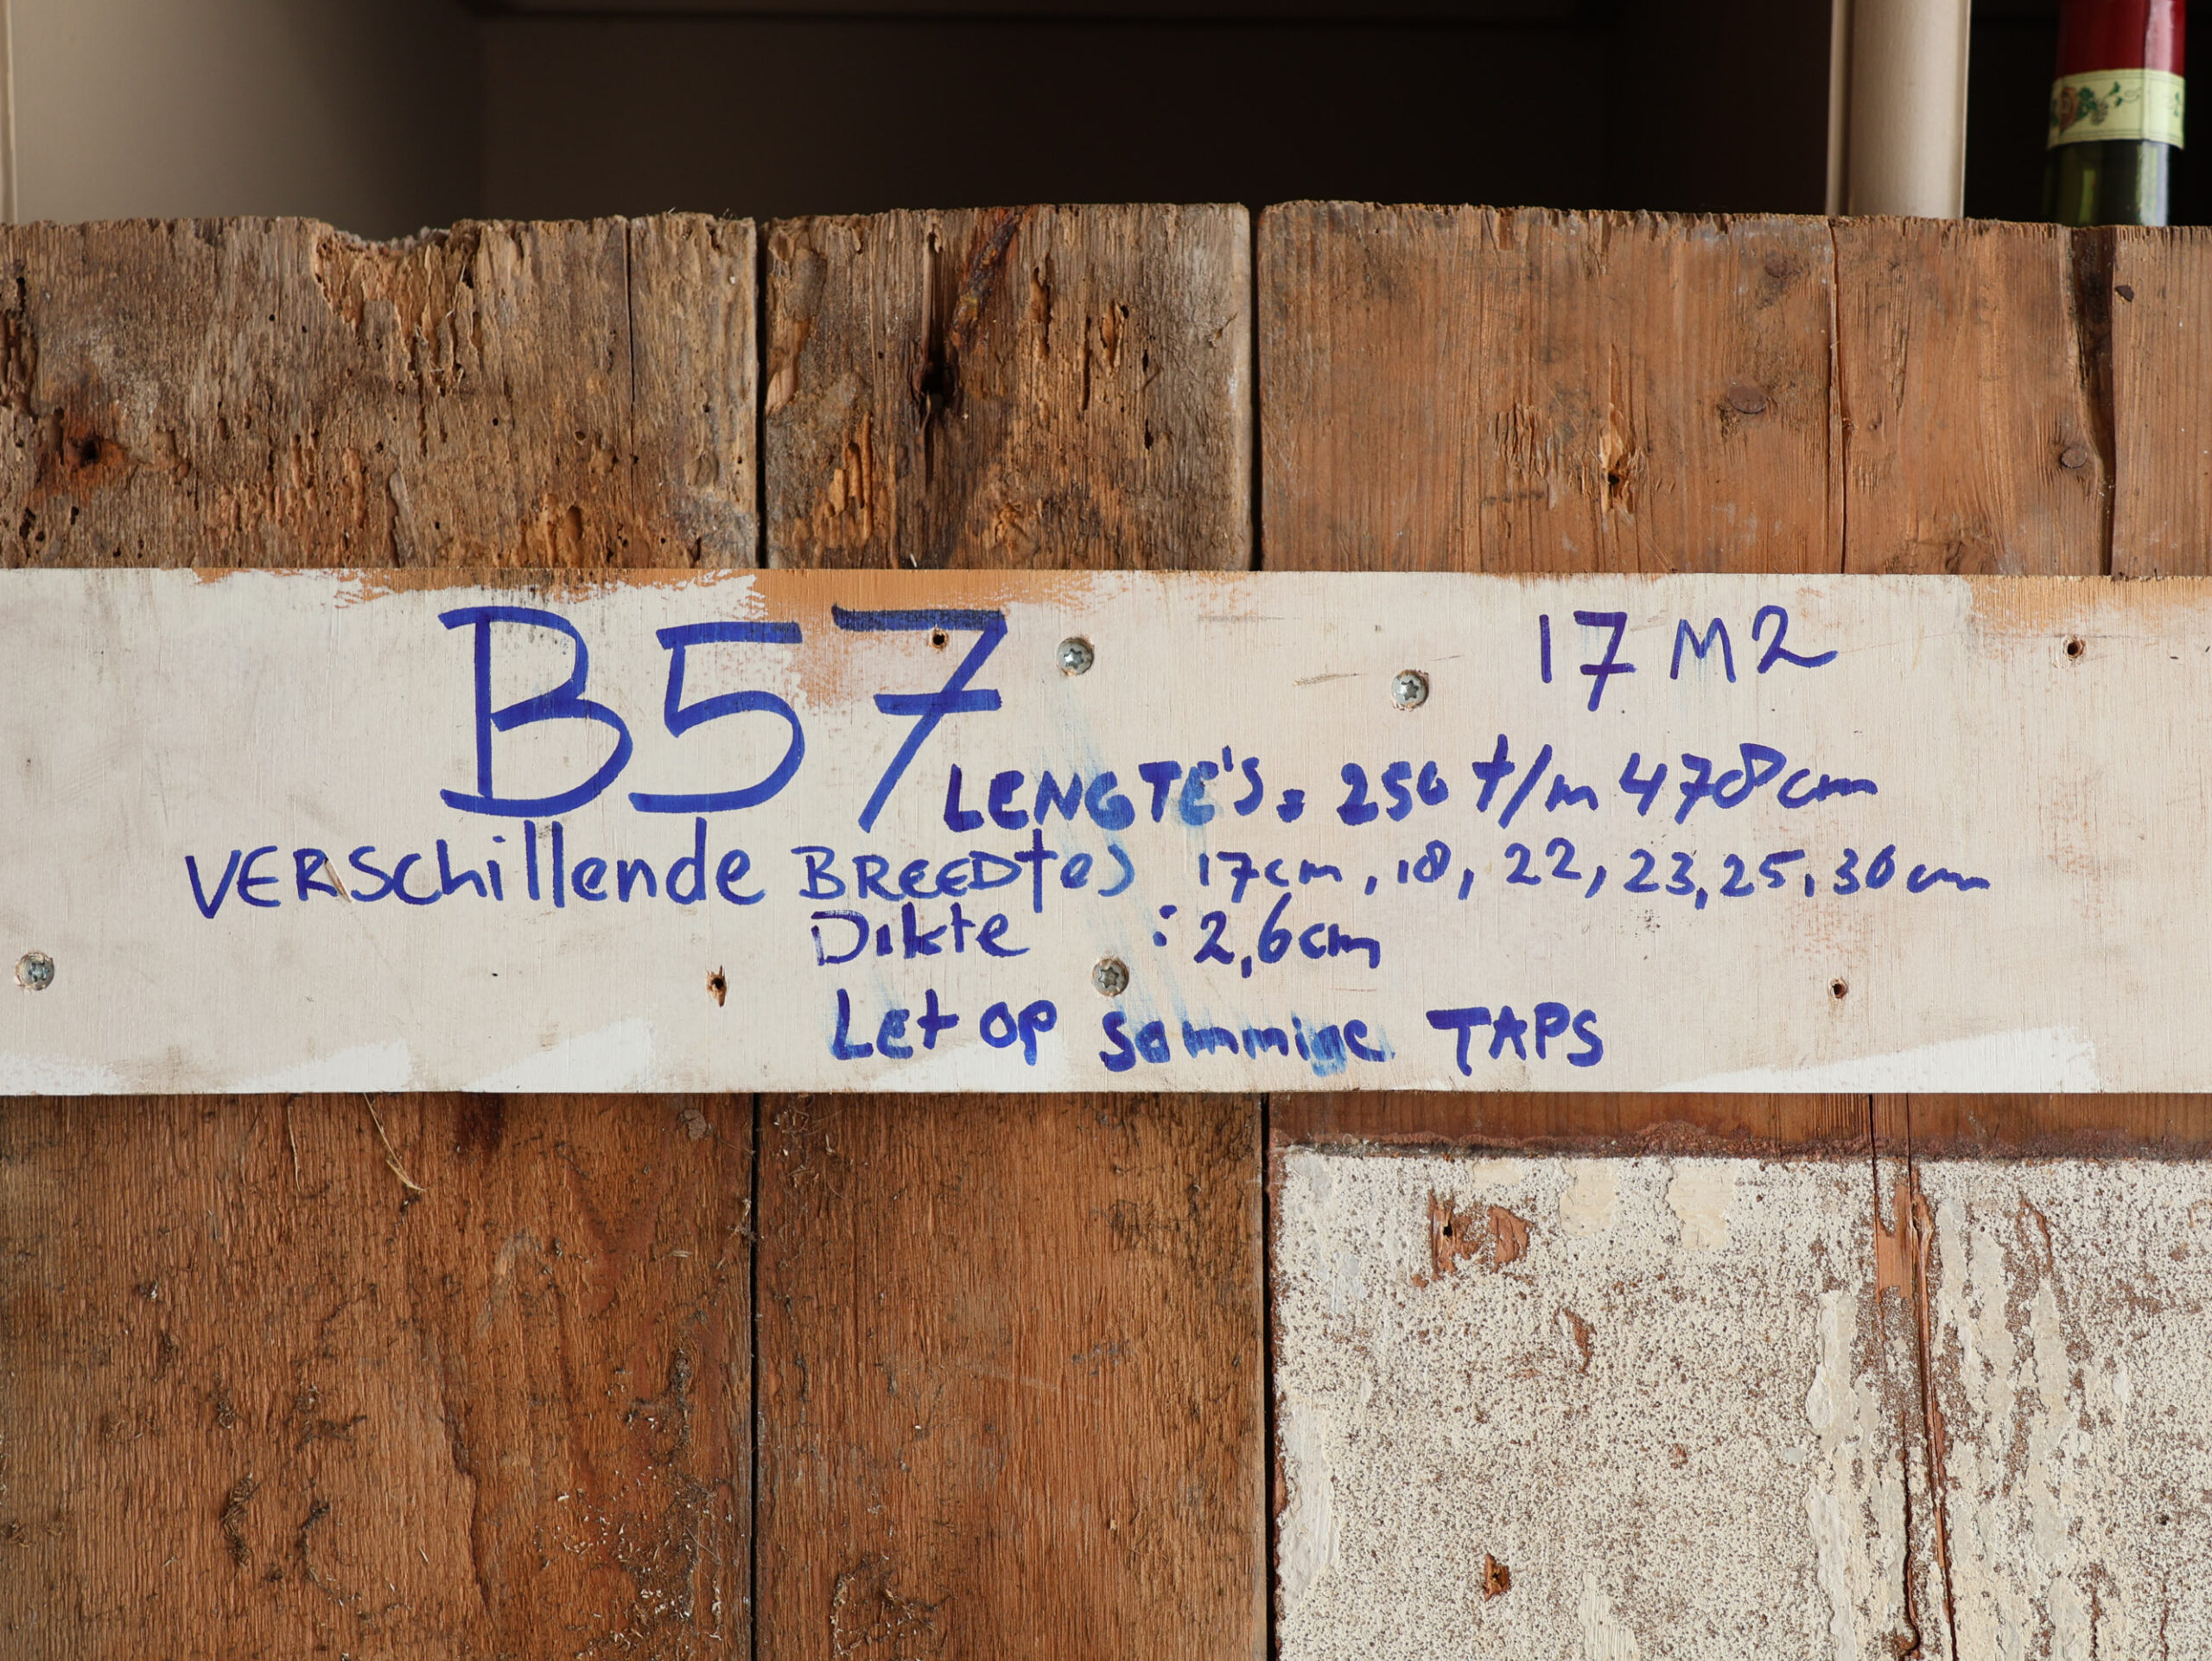 B57
17 M2
LENGTE'S = 250 t/m 478cm
VERSchillende BREEDtes 17cm, 18, 22, 23, 25, 30 cm
Dikte : 2,6cm
Let op sommige TAPS